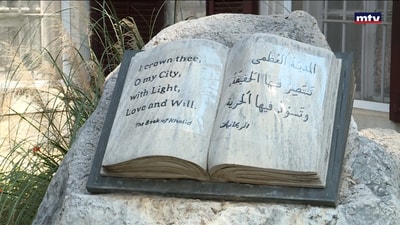 mtv
I crown thee,
O my City,
with Light,
Love and Will.
The Book of Khalid
المدينة العظمى
تنتصر فيها الحقيقة
وتسود فيها الحرية
الريحانيات